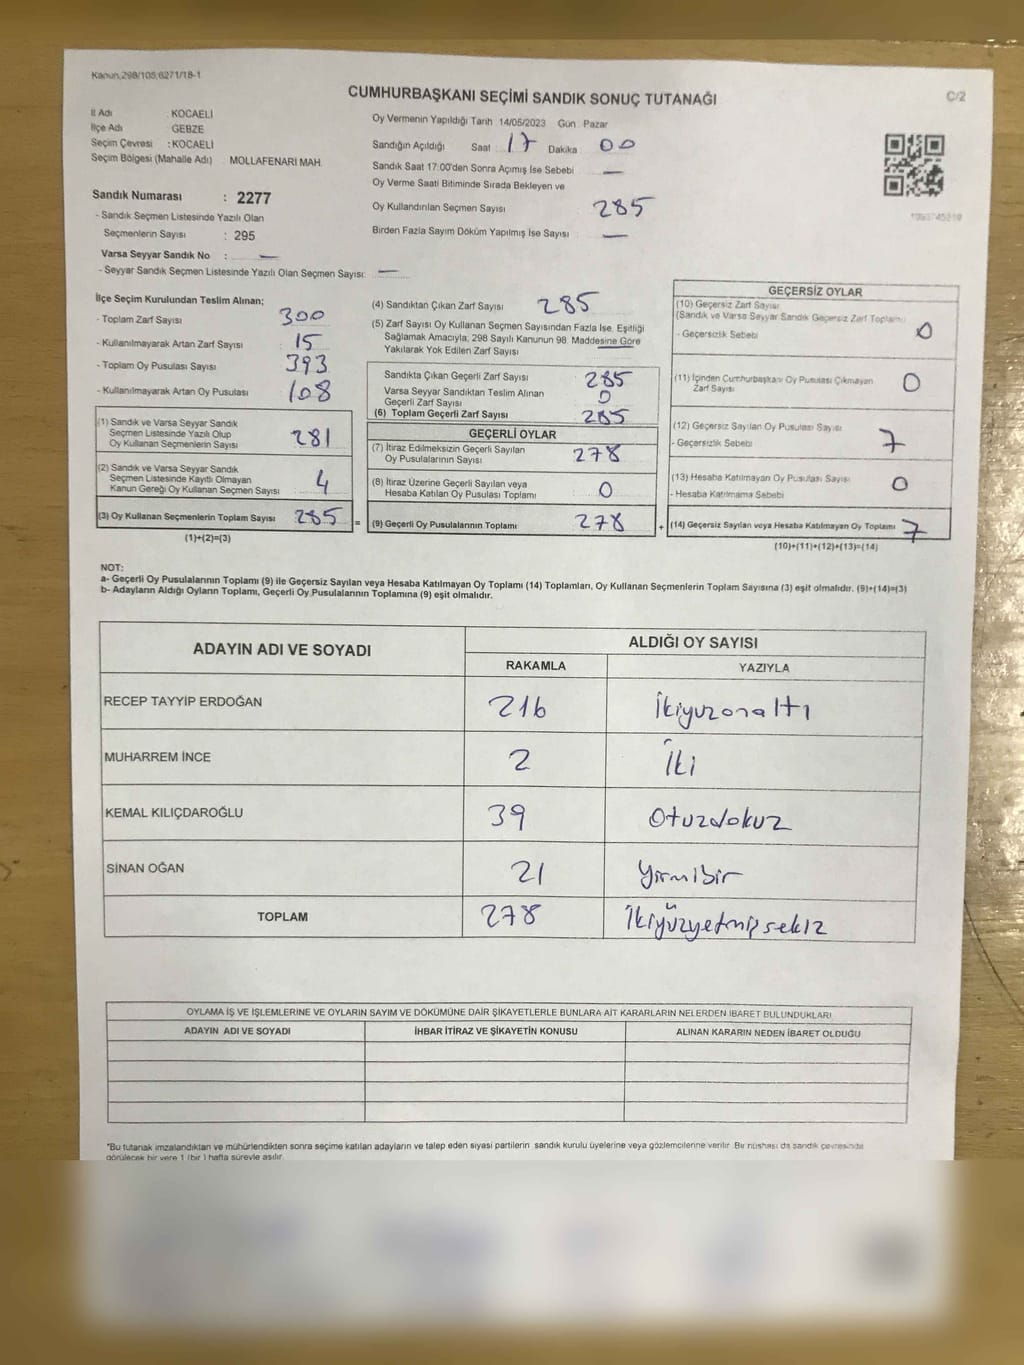 Kanun,298/105,6271/18-1
C/2
CUMHURBAŞKANI SEÇİMİ SANDIK SONUÇ TUTANAĞI
İl Adı : KOCAELİ
İlçe Adı : GEBZE
Seçim Çevresi : KOCAELİ
Seçim Bölgesi (Mahalle Adı) : MOLLAFENARİ MAH.
Sandık Numarası : 2277
- Sandık Seçmen Listesinde Yazılı Olan
Seçmenlerin Sayısı : 295
Varsa Seyyar Sandık No : —
- Seyyar Sandık Seçmen Listesinde Yazılı Olan Seçmen Sayısı: —
Oy Vermenin Yapıldığı Tarih :14/05/2023 Gün : Pazar
Sandığın Açıldığı Saat : 17 Dakika : 00
Sandık Saat 17:00'den Sonra Açımış İse Sebebi : —
Oy Verme Saati Bitiminde Sırada Bekleyen ve
Oy Kullandırılan Seçmen Sayısı : 285
Birden Fazla Sayım Döküm Yapılmış İse Sayısı : —
İlçe Seçim Kurulundan Teslim Alınan;
- Toplam Zarf Sayısı : 300
- Kullanılmayarak Artan Zarf Sayısı : 15
- Toplam Oy Pusulası Sayısı : 393
- Kullanılmayarak Artan Oy Pusulası : 108
(1) Sandık ve Varsa Seyyar Sandık
Seçmen Listesinde Yazılı Olup
Oy Kullanan Seçmenlerin Sayısı : 281
(2) Sandık ve Varsa Seyyar Sandık
Seçmen Listesinde Kayıtlı Olmayan
Kanun Gereği Oy Kullanan Seçmen Sayısı : 4
(3) Oy Kullanan Seçmenlerin Toplam Sayısı : 285 =
(1)+(2)=(3)
(4) Sandıktan Çıkan Zarf Sayısı : 285
(5) Zarf Sayısı Oy Kullanan Seçmen Sayısından Fazla İse, Eşitliği
Sağlamak Amacıyla, 298 Sayılı Kanunun 98. Maddesine Göre
Yakılarak Yok Edilen Zarf Sayısı : —
Sandıkta Çıkan Geçerli Zarf Sayısı : 285
Varsa Seyyar Sandıktan Teslim Alınan
Geçerli Zarf Sayısı : 0
(6) Toplam Geçerli Zarf Sayısı : 285
GEÇERLİ OYLAR
(7) İtiraz Edilmeksizin Geçerli Sayılan
Oy Pusulalarının Sayısı : 278
(8) İtiraz Üzerine Geçerli Sayılan veya
Hesaba Katılan Oy Pusulası Toplamı : 0
(9) Geçerli Oy Pusulalarının Toplamı : 278 +
GEÇERSİZ OYLAR
(10) Geçersiz Zarf Sayısı
(Sandık ve Varsa Seyyar Sandık Geçersiz Zarf Toplamı) : 0
- Geçersizlik Sebebi
(11) İçinden Cumhurbaşkanı Oy Pusulası Çıkmayan
Zarf Sayısı : 0
(12) Geçersiz Sayılan Oy Pusulası Sayısı : 7
- Geçersizlik Sebebi
(13) Hesaba Katılmayan Oy Pusulası Sayısı : 0
- Hesaba Katılmama Sebebi
(14) Geçersiz Sayılan veya Hesaba Katılmayan Oy Toplamı : 7
(10)+(11)+(12)+(13)=(14)
NOT:
a- Geçerli Oy Pusulalarının Toplamı (9) ile Geçersiz Sayılan veya Hesaba Katılmayan Oy Toplamı (14) Toplamları, Oy Kullanan Seçmenlerin Toplam Sayısına (3) eşit olmalıdır. (9)+(14)=(3)
b- Adayların Aldığı Oyların Toplamı, Geçerli Oy Pusulalarının Toplamına (9) eşit olmalıdır.
ADAYIN ADI VE SOYADI ALDIĞI OY SAYISI
RAKAMLA YAZIYLA
RECEP TAYYİP ERDOĞAN 216 İkiyuzonaltı
MUHARREM İNCE 2 İki
KEMAL KILIÇDAROĞLU 39 Otuzdokuz
SİNAN OĞAN 21 Yirmibir
TOPLAM 278 İkiyüzyetmişsekiz
OYLAMA İŞ VE İŞLEMLERİNE VE OYLARIN SAYIM VE DÖKÜMÜNE DAİR ŞİKAYETLERLE BUNLARA AİT KARARLARIN NELERDEN İBARET BULUNDUKLARI
ADAYIN ADI VE SOYADI İHBAR İTİRAZ VE ŞİKAYETİN KONUSU ALINAN KARARIN NEDEN İBARET OLDUĞU
*Bu tutanak imzalandıktan ve mühürlendikten sonra seçime katılan adayların ve talep eden siyasi partilerin sandık kurulu üyelerine veya gözlemcilerine verilir. Bir nüshası da sandık çevresinde
görülecek bir yere 1 (bir ) hafta süreyle asılır.